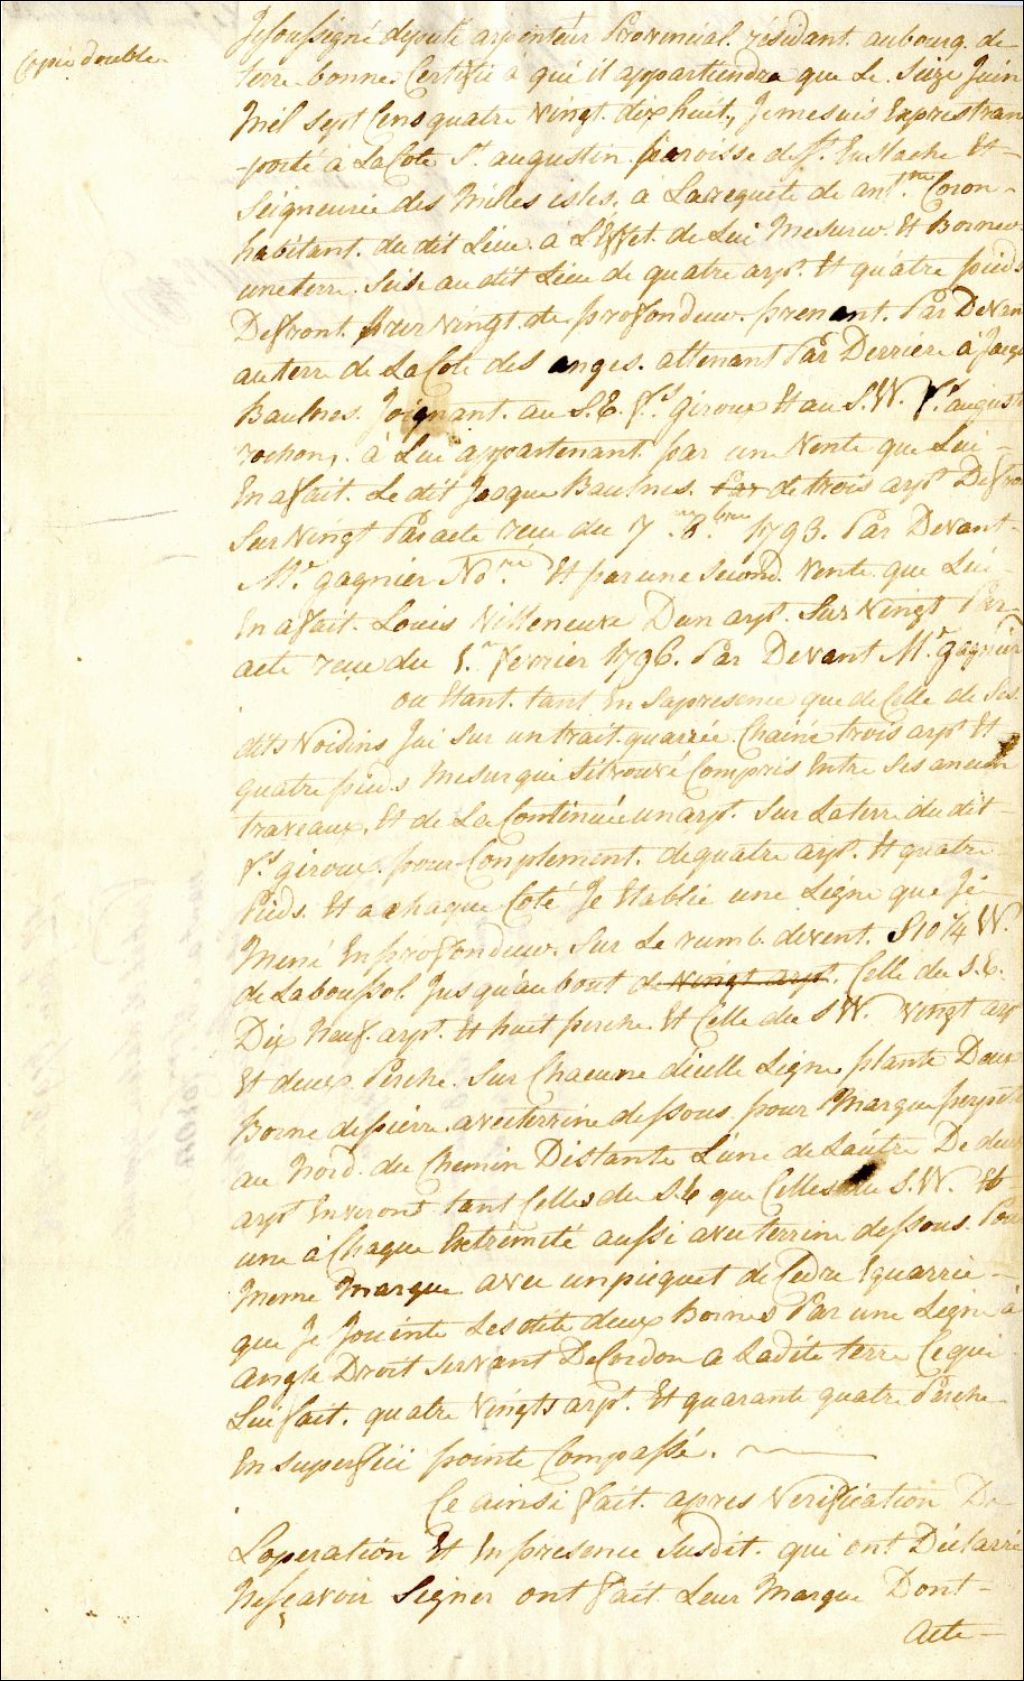 Copié double
Je soussigné député arpenteur Provincial. résidant. au bourg. de
terre bonne. Certifie a qui il appartiendra que Le. Seize Juin
Mil Sept Cens quatre Vingt. dix huit, Je me suis Expres tran
-porté à La Cote St. augustin. paroisse de St. Eustache Et -
Seigneurie des Milles isles, à La requete de antne. Coron -
habitant. du dit Lieu. à L'Effet. de Lui Mesurer. Et Borner
une terre. Sise au dit Lieu de quatre arpt. Et quatre pieds
De front. Sur vingt. de. profondeur. prenant. Par Devan
au terre de La Cote des anges. attenant Par Derriere à Jacqe
Baulnes. Joignant. au S.E. Fs. giroux Et au S.W. Fs. august
rochon,. à Lui appartenant. par une Vente que Lui -
En a fait. Le dit Jacque Baulnes. Par de trois arpt. De fron
Sur Vingt Par acte reçu du 7 .8.bre 1793. Par Devant -
Mr. gagnier Nore. Et par une Second. Vente. que Lui -
En a fait. Louis Villeneuve D'un arpt. Sur Vingt Par -
acte reçu du 1.r Fevrier 1796. Par Devant Mr. gagnier
ou Etant. tant En Sa presence que de Celle de Ses.
dits Voisins Jai Sur un trait. quarrée. Chainé trois arpt Et -
quatre pieds Mesur qui Sétrouvé Compris Entre Ses ancien
travaux, Et de La Continuée un arpt. Sur La terre du dit -
Fs. giroux. pour Complement. de quatre arpt. Et quatre
Pieds. Et a chaque Coté Je Etablie une Ligne que Jé
Mené En profondeur. Sur Le rumb. devent. S 10 1/4 W.
de La boussol. Jusqu'au bout de vingt arpt. Celle du S.E.
Dix Neuf. arpt. Et huit perche. Et Celle du S W. Vingt arp
Et deux. Perche. Sur Chacune d'icelle Ligne, planté Deux
Borne de pierre. avec terrine dessous pour Marque perpet
au Nord. du Chemin Distante L'une de Lautre De deux
arpt. Environt tant Celles du S.E que Celles du S.W. Et
une a Chaque Extrémité aussi avec terrine dessous. Pour
Meme Marque avec un picquet de Cedre Equarrie -
que Je Jointe Les dite deux Bornes Par une Ligne à
angle Droit Servant De Cordon a La dite terre Ce qui
Lui fait. quatre Vingts arpt. Et quarante quatre Perche
En Superficie pointe Compassé.
Ce ainsi Fait. apres Verification De
L'operation Et En presence Susdit. qui ont Déclarré
Ne sçavoir Signer ont Fait Leur Marque Dont -
Acte -